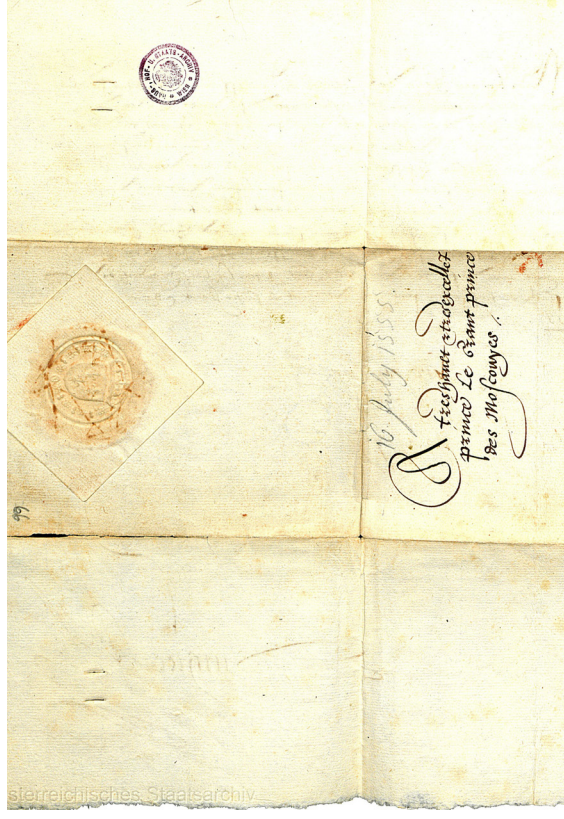 HAUS-, HOF- U. STAATS-ARCHIV WIEN
16 July 1555
A treshault & tresexcellet
prince Le Grant prince
des Moscouyes /.
66
sterreichisches Staatsarchiv